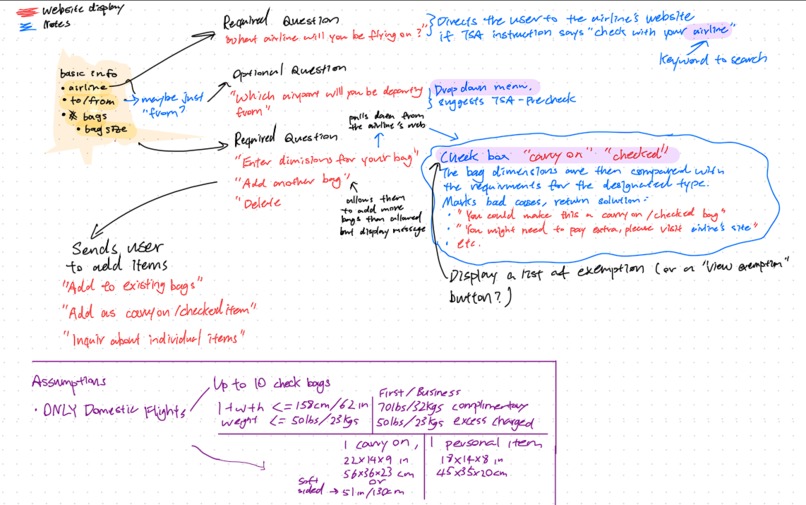 Website display
Notes
Required Question
"What airline will you be flying on?"
Directs the user to the airline's website
if TSA instruction says "check with your airline"
keyword to search
basic info
• airline
• to/from
• # bags
• bag size
maybe just
"from"?
Optional Question
"Which airport will you be departing
from"
Drop down menu.
suggests TSA-precheck
Required Question
pulls down from
the airline's web
"Enter dimisions for your bag"
"Add another bag"
"Delete
allows them
to add more
bags than allowed
but display message
Check box "carry on" "checked"
The bag dimensions are then compared with
the requirments for the designated type.
Marks bad cases, return solution:
• "You could make this a carry on/checked bag"
• "You might need to pay extra, please visit airline's site"
• etc.
Display a list of exemption (or a "View exemption"
button?)
Sends user
to add items
"Add to existing bags"
"Add as carry on/checked item"
"Inquir about individual items"
Assumptions
• ONLY Domestic flights
Up to 10 check bags
l+w+h <= 158cm/62in
weght <= 50lbs/23kgs
First/Business
70lbs/32kgs complimentary
50lbs/23kgs excess charged
1 carry on,
22x14x9 in
56x36x23 cm
or
soft
sided → 51in/130cm
1 personal item
18x14x8 in
45x35x20cm